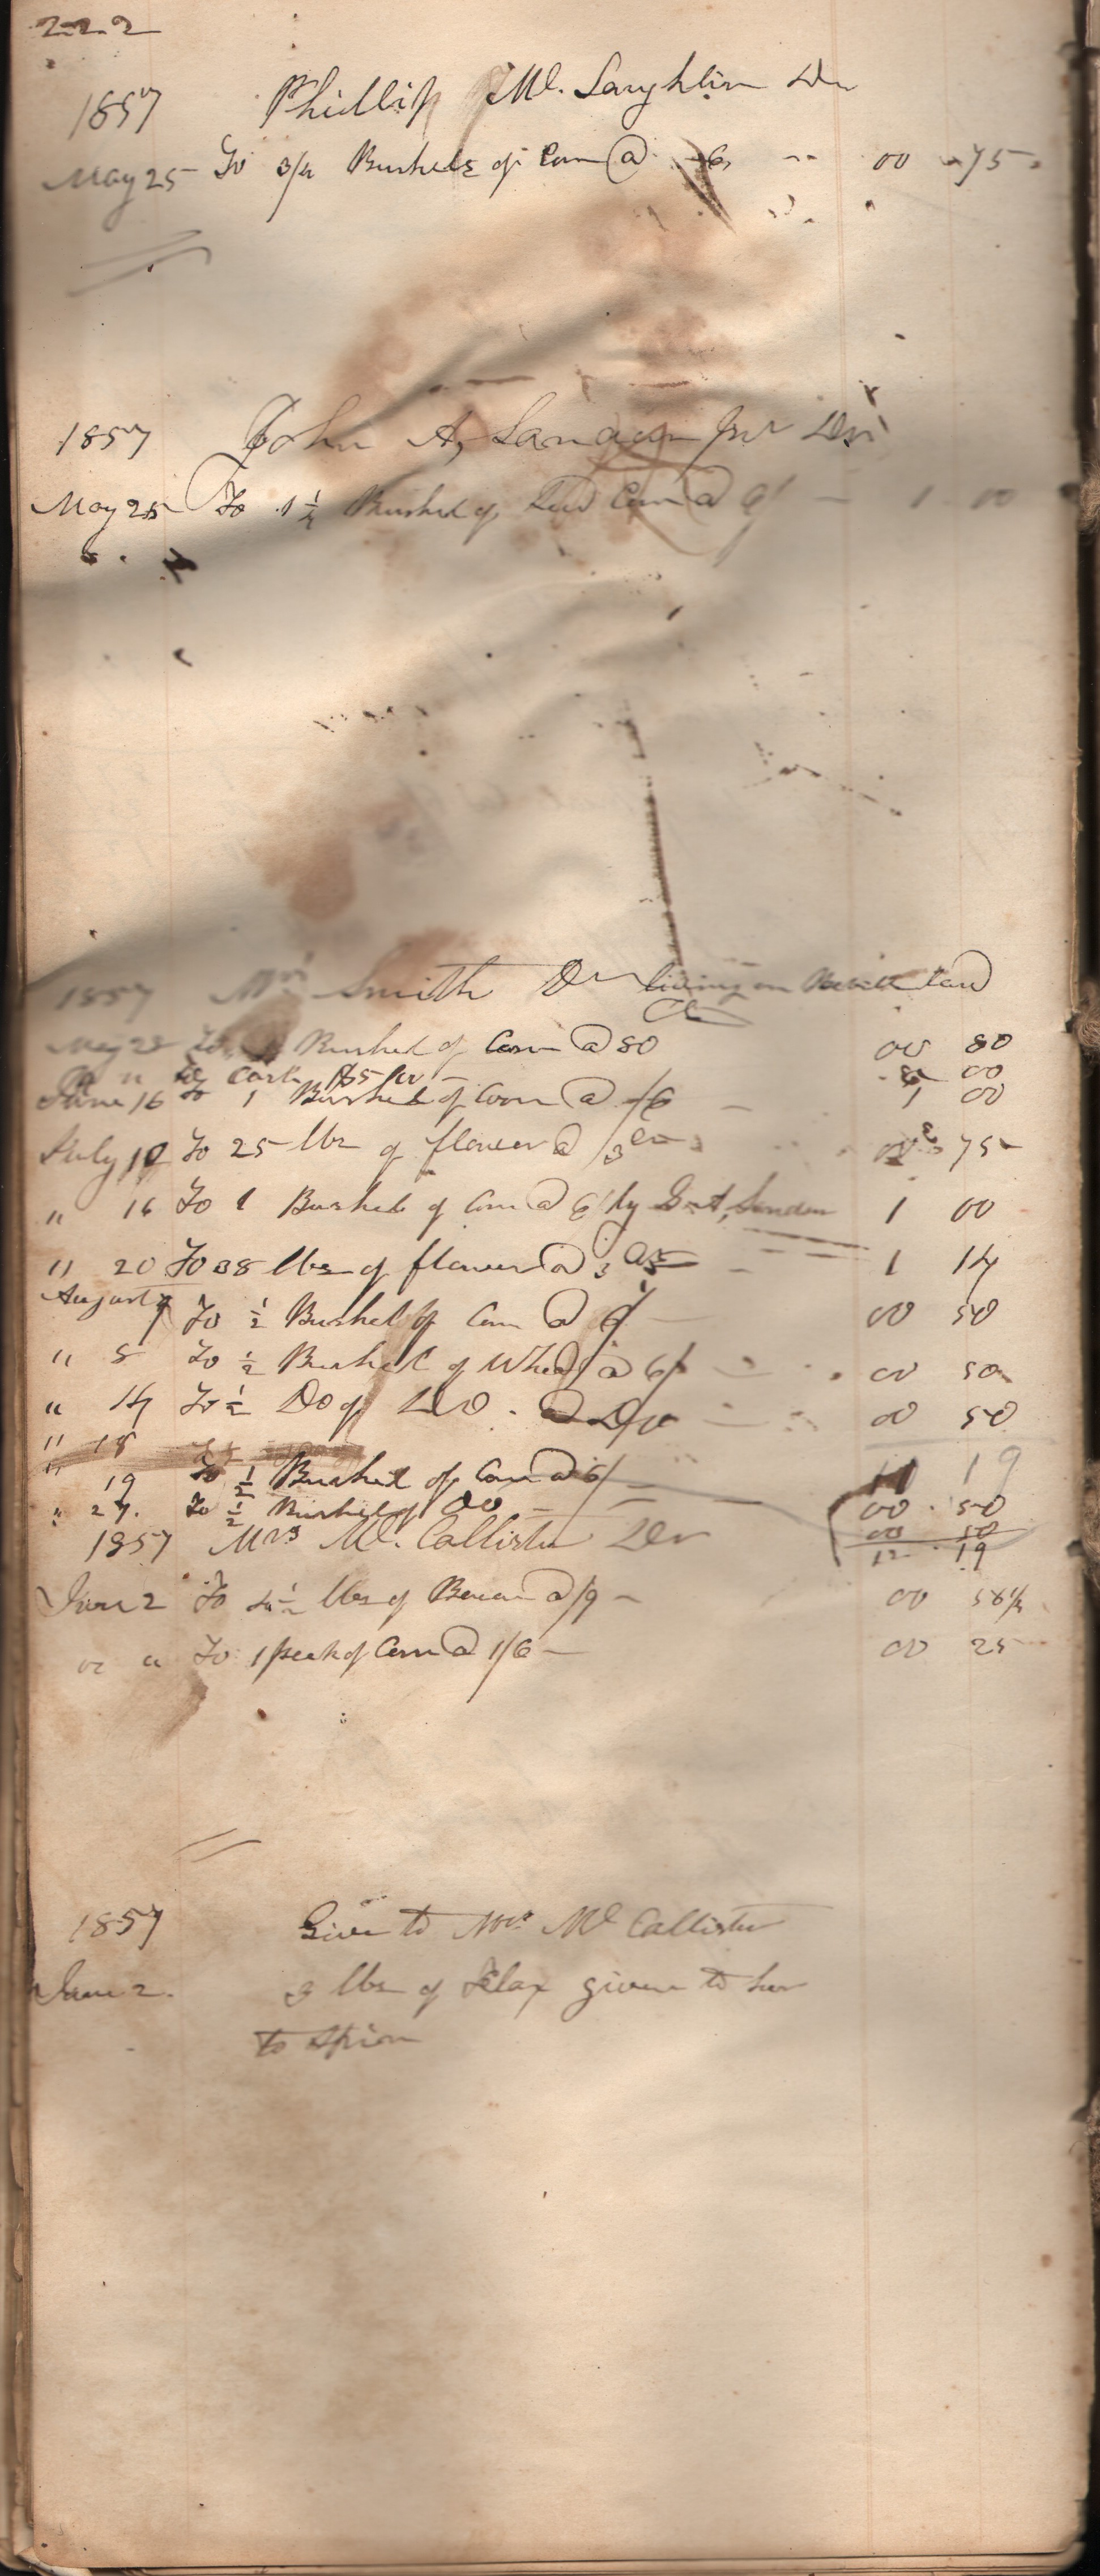 222
1857 Phillip Mc. Laughlin Dr
May 25 To 3/4 Bushels of Corn @ 6 00 75
1857 John A, Jnr Dr
May 25 To 1 1/4 Bushel of Corn @ 1 00
1857 Smith Dr living on land
May To Bushel of Corn @ 80 00 80
" To Cash $5 00 5 00
June 16 To 1 Bushel of Corn @ /6 1 00
July 10 To 25 lbs of flower @ /3 75
" 16 To 1 Bushel of Corn @ 6/ by 1 00
" 20 To 38 lbs of flower @ 3 1 14
August 7 To 1/2 Bushel of Corn @ 6/ 00 50
" 8 To 1/2 Bushel of Wheat @ 6/ 00 50
" 14 To 1/2 Do of Do @ Do 00 50
" 18
11 19
" 19 To 1/2 Bushel of Corn @ 6/ 00 50
" 27. To 1/2 Bushel of Do 00 50
12 19
1857 Mrs Mc. Callister Dr
June 2 To 4 1/2 lbs of Bacon @ /9 00 56 1/4
" " To 1 peck of Corn @ 1/6 00 25
1857 Give to Mrs Mc Callister
June 2. 3 lbs of Flax given to her
to Spin